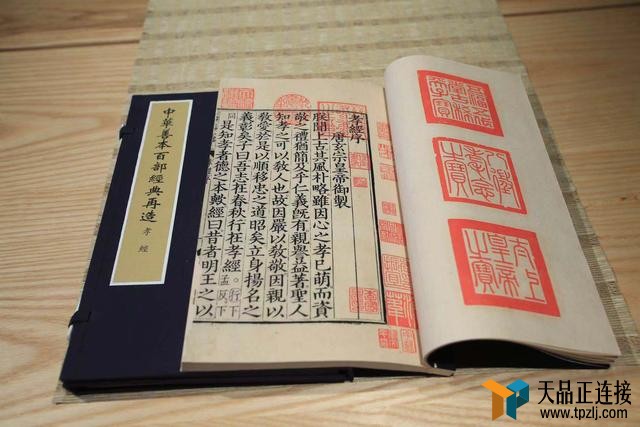 中華善本百部經典再造
孝經
五福五代堂古稀天子寶
八徵耄念之寶
太上皇帝之寶
孝經序
唐玄宗皇帝御製
朕聞上古其風朴略雖因心之孝已萌而資
敬之禮猶簡及乎仁義既有親譽益著聖人
知孝之可以教人也故因嚴以教敬因親以
教愛於是以順移忠之道昭矣立身揚名之
義彰矣子曰吾志在春秋行在孝經。行下孟反下
同是知孝者德之本歟經曰昔者明王之以
天品正连接
www.tpzlj.com